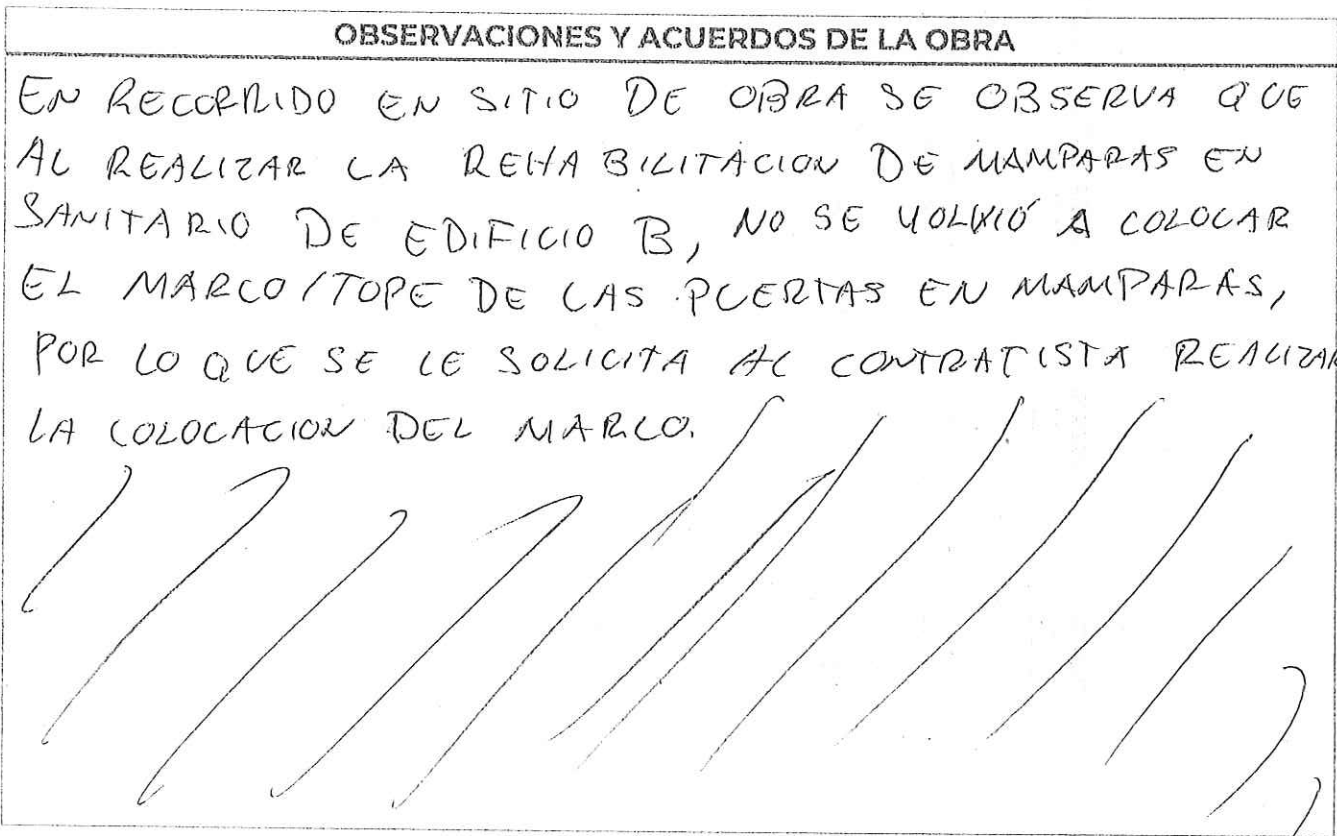 OBSERVACIONES Y ACUERDOS DE LA OBRA
EN RECORRIDO EN SITIO DE OBRA SE OBSERVA QUE
AL REALIZAR LA REHABILITACION DE MAMPARAS EN
SANITARIO DE EDIFICIO B, NO SE VOLVIÓ A COLOCAR
EL MARCO/TOPE DE LAS PUERTAS EN MAMPARAS,
POR LO QUE SE LE SOLICITA AL CONTRATISTA REALIZAR
LA COLOCACION DEL MARCO.